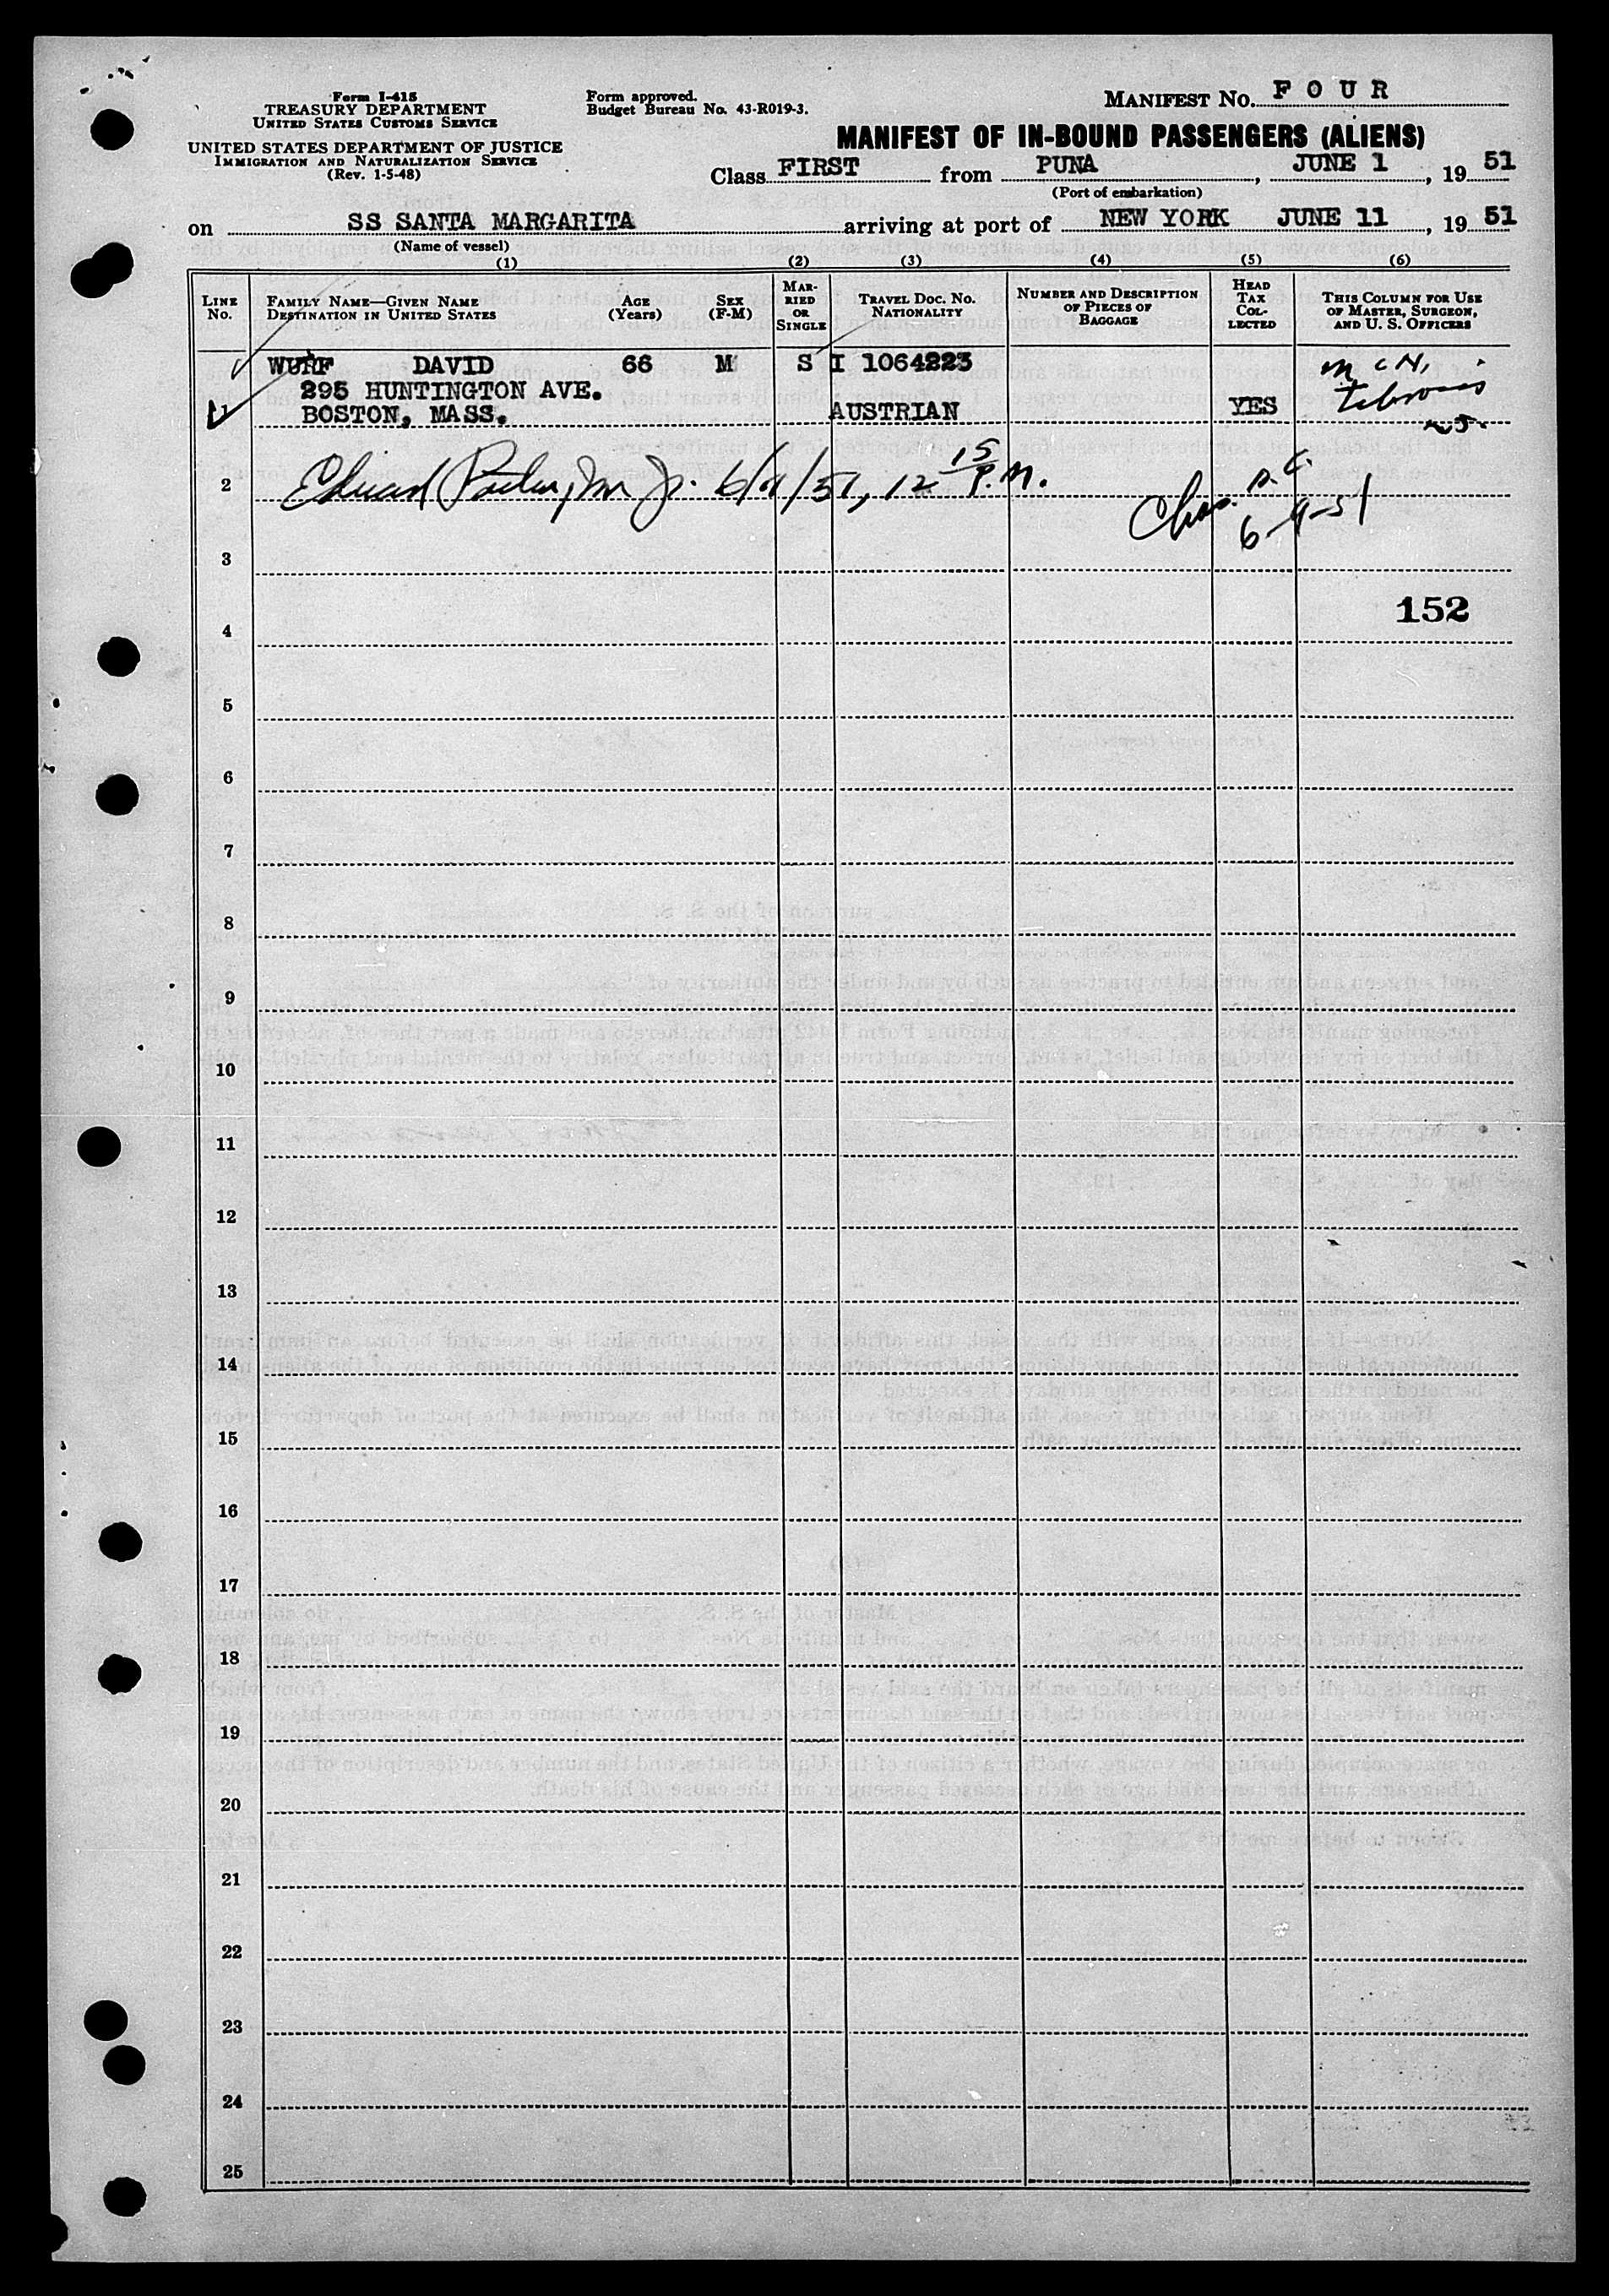 Form I-415
TREASURY DEPARTMENT
UNITED STATES CUSTOMS SERVICE
UNITED STATES DEPARTMENT OF JUSTICE
IMMIGRATION AND NATURALIZATION SERVICE
(Rev. 1-5-48)
Form approved.
Budget Bureau No. 43-R019-3.
MANIFEST NO. FOUR
MANIFEST OF IN-BOUND PASSENGERS (ALIENS)
Class FIRST from PUNA, JUNE 1, 19 51
(Port of embarkation)
on SS SANTA MARGARITA arriving at port of NEW YORK JUNE 11, 19 51
(Name of vessel)
(1) (2) (3) (4) (5) (6)
LINE NO.
FAMILY NAME—GIVEN NAME
DESTINATION IN UNITED STATES
AGE
(Years)
SEX
(F-M)
MARRIED OR SINGLE
TRAVEL DOC. NO.
NATIONALITY
NUMBER AND DESCRIPTION
OF PIECES OF
BAGGAGE
HEAD
TAX
COLLECTED
THIS COLUMN FOR USE
OF MASTER, SURGEON,
AND U. S. OFFICERS
WURF DAVID 66 M S I 1064223
295 HUNTINGTON AVE.
1 BOSTON, MASS. AUSTRIAN YES
2 Jr. 6/11/51, 12 15 P.M.
3
152
4
5
6
7
8
9
10
11
12
13
14
15
16
17
18
19
20
21
22
23
24
25